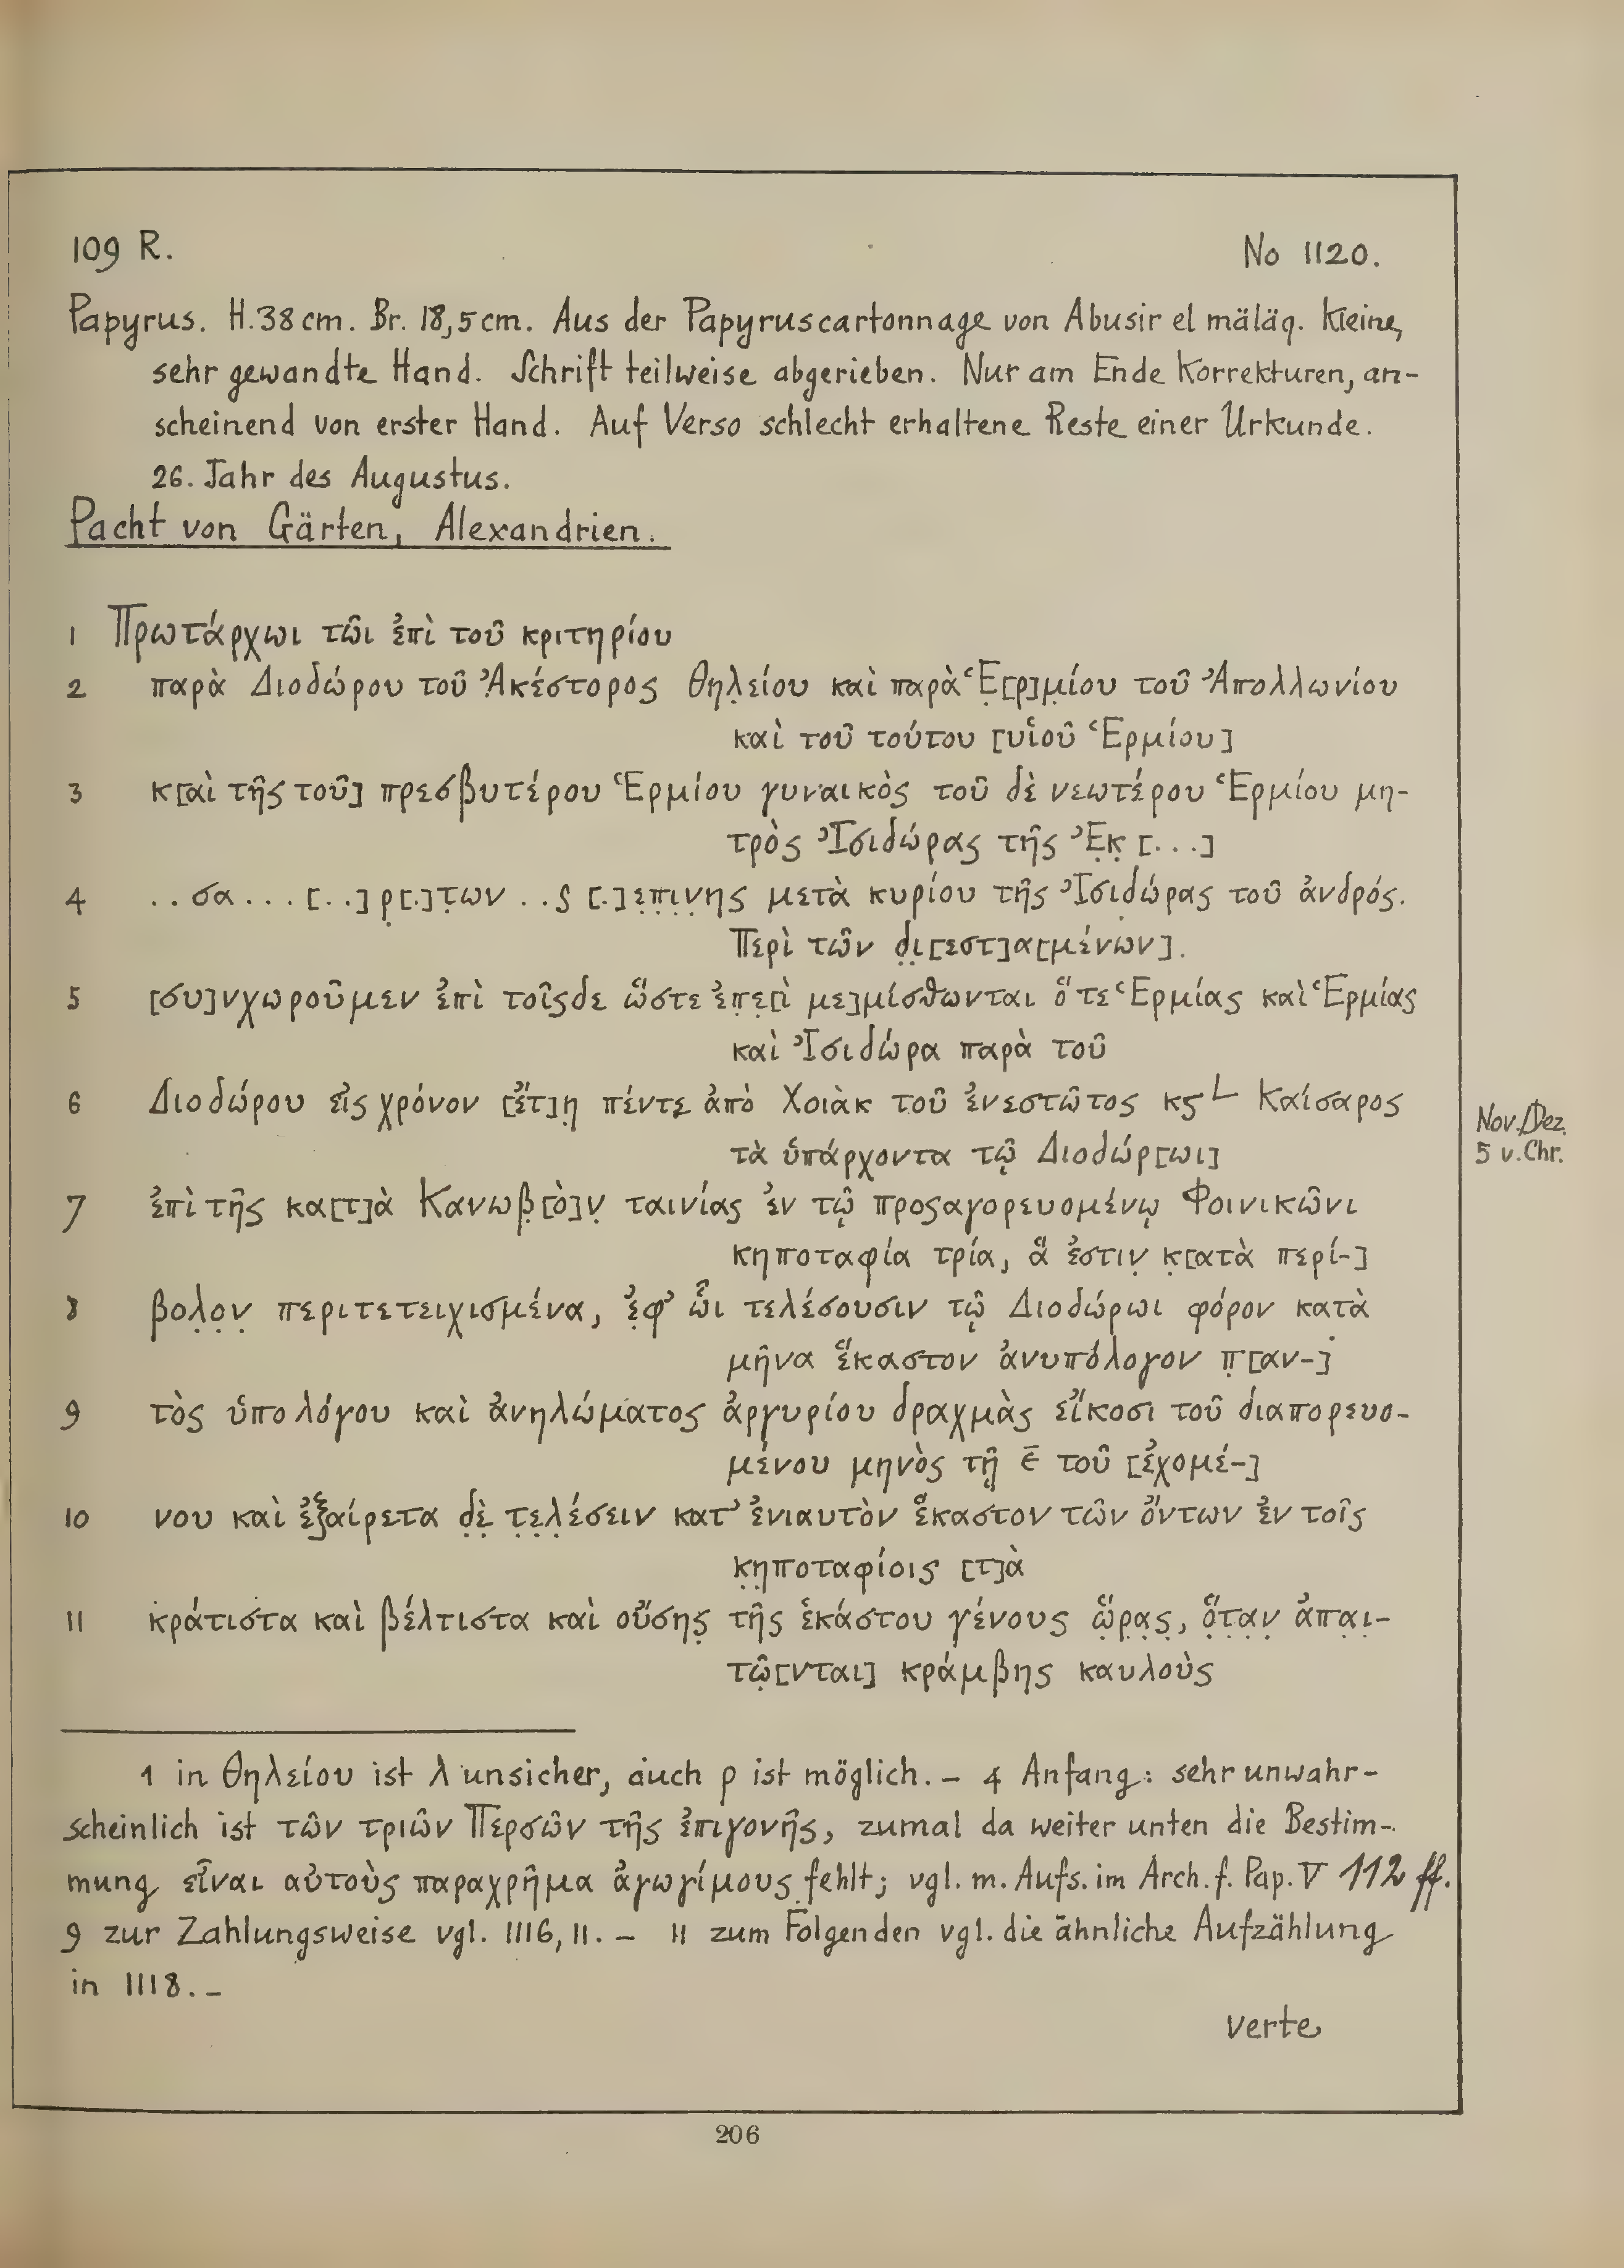 109 R.
No 1120.
Papyrus. H. 38 cm. Br. 18,5 cm. Aus der Papyruscartonnage von Abusir el mäläq. Kleine,
sehr gewandte Hand. Schrift teilweise abgerieben. Nur am Ende Korrekturen, an-
scheinend von erster Hand. Auf Verso schlecht erhaltene Reste einer Urkunde.
26. Jahr des Augustus.
Pacht von Gärten, Alexandrien.
1 Πρωτάρχωι τῶι ἐπὶ τοῦ κριτηρίου
2 παρὰ Διοδώρου τοῦ Ἀκέστορος Θηλ̣είου καὶ παρὰ Ἑ̣[ρ]μ̣ίου τοῦ Ἀπολλωνίου
καὶ τοῦ τούτου [υἱοῦ Ἑρμίου]
3 κ[αὶ τῆς τοῦ] πρεσβυτέρου Ἑρμίου γυναικὸς τοῦ δὲ νεωτέρου Ἑρμίου μη-
τρὸς Ἰσιδώρας τῆς Ἐ̣κ̣ [...]
4 ..σα...[..]ρ̣[.]τ̣ων ..ς [.]ε̣π̣ι̣ν̣ης μετὰ κυρίου τῆς Ἰσιδώρας τοῦ ἀνδρός.
Περὶ τῶν δ̣ι̣[εστ]α[μένων].
5 [συ]νχωροῦμεν ἐπὶ τοῖςδε ὥστε ἐπ̣ε̣[ὶ με]μίσθωνται ὅ τε Ἑρμίας καὶ Ἑρμίας
καὶ Ἰσιδώρα παρὰ τοῦ
6 Διοδώρου εἰς χρόνον [ἔτ]η̣ πέντε ἀπὸ Χοιὰκ τοῦ ἐνεστῶτος κς L Καίσαρος
τὰ ὑπάρχοντα τῷ Διοδώρ[ωι]
Nov./Dez.
5 v. Chr.
7 ἐπὶ τῆς κα[τ]ὰ Κανωβ̣[ὸ]ν̣ ταινίας ἐν τῷ προςαγορευομένῳ Φοινικῶνι
κηποταφία τρία, ἅ ἐστιν̣ κ̣[ατὰ περί-]
8 βολ̣ο̣ν̣ περιτετειχισμένα, ἐ̣φ' ὧι τελέσουσιν τῷ Διοδώρωι φόρον κατὰ
μῆνα ἕκαστον ἀνυπόλογον π̣[αν-]
9 τὸς ὑπολόγου καὶ ἀνηλώματος ἀργυρίου δραχμὰς εἴκοσι τοῦ διαπορευο-
μένου μηνὸς τῇ ε̄ τοῦ [ἐχομέ-]
10 νου καὶ ἐξαίρετα δ̣ὲ̣ τ̣ε̣λ̣έσειν κατ' ἐνιαυτὸν ἕκαστον τῶν ὄντων ἐν τοῖς
κ̣η̣ποταφίοις [τ]ὰ
11 κράτιστα καὶ βέλτιστα καὶ οὔσης̣ τῆς ἑκάστου γένους ὥ̣ρ̣α̣ς̣, ὅ̣τ̣α̣ν̣ ἀπα̣ι̣-
τῶ̣[νται] κράμβης καυλοὺς
1 in Θηλείου ist λ unsicher, auch ρ ist möglich. – 4 Anfang: sehr unwahr-
scheinlich ist τῶν τριῶν Περσῶν τῆς ἐπιγονῆς, zumal da weiter unten die Bestim-
mung εἶναι αὐτοὺς παραχρῆμα ἀγωγίμους fehlt; vgl. m. Aufs. im Arch. f. Pap. V 112 ff.
9 zur Zahlungsweise vgl. 1116, 11. – 11 zum Folgenden vgl. die ähnliche Aufzählung
in 1118. –
verte
206